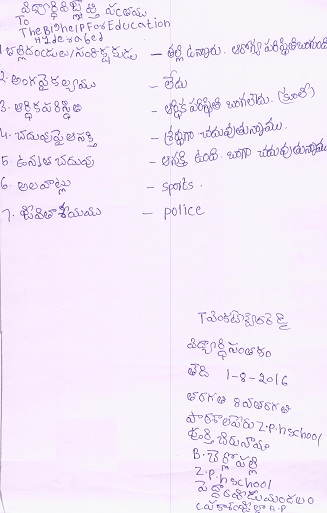 విద్యార్థి
To
TheBigHelpForEducation
Hyderabad
1. తల్లిదండ్రులు/సంరక్షకుడు — తల్లి ఉన్నారు. ఆరోగ్య పరిస్థితి
2. అంగవైకల్యము — లేదు
3. ఆర్థికపరిస్థితి — ఆర్థిక పరిస్థితి బాగలేదు. (కూలీ)
4. చదువుపై ఆసక్తి — శ్రద్ధగా చదువుతున్నాము.
5. ఉన్నత చదువు — ఆసక్తి ఉంది. బాగా చదువుతున్నాము
6. అలవాట్లు — sports.
7. జీవితాశయము — police
విద్యార్థి సంతకం
తేది 1-8-2016
తరగతి
పాఠశాలపేరు Z.p.h school
B. చెర్లోపల్లి
Z.p.h school
ప్రకాశం జిల్లా A.P